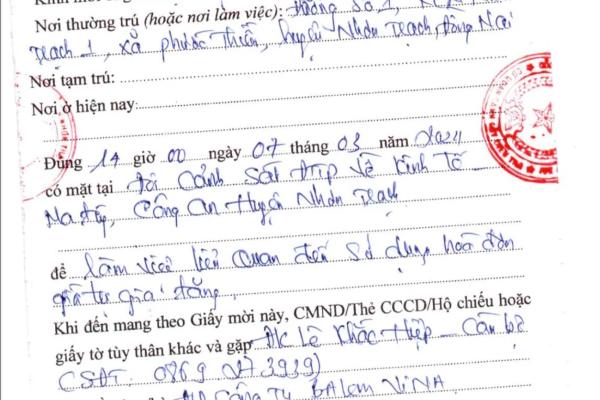 Nơi thường trú (hoặc nơi làm việc): Đường số 1,
Trạch 1, xã Phước Thiền, huyện Nhơn Trạch, Đồng Nai
Nơi tạm trú:
Nơi ở hiện nay:
Đúng 14 giờ 00 ngày 07 tháng 03 năm 2024
có mặt tại đội Cảnh sát ĐTTP về kinh tế
Ma túy, Công An Huyện Nhơn Trạch
để làm việc liên quan đến sử dụng hoá đơn
giá trị gia tăng,
Khi đến mang theo Giấy mời này, CMND/Thẻ CCCD/Hộ chiếu hoặc
giấy tờ tùy thân khác và gặp ĐK Lê Khắc Hiệp - Cán bộ
CSĐT. 0869 3939)
Công Ty GALEM VINA